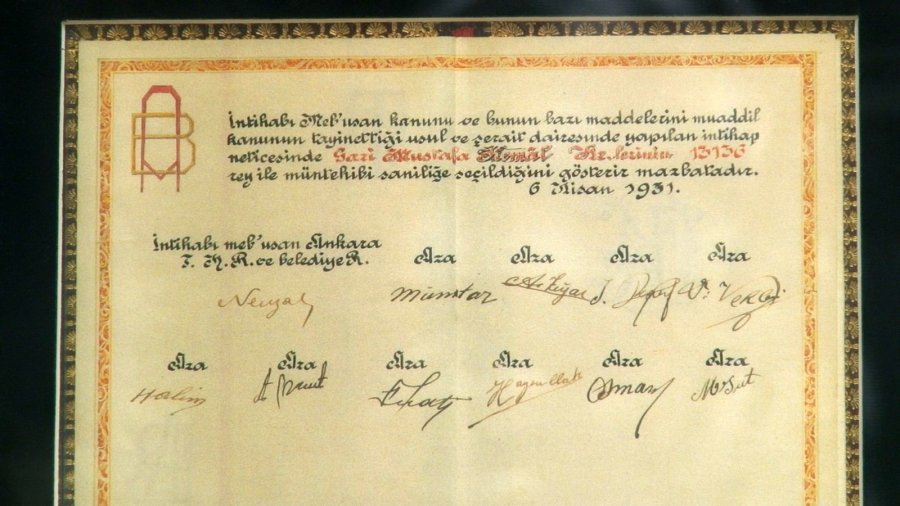 İntihabı Meb'usan kanunu ve bunun bazı maddelerini muaddil
kanunun tayinettiği usul ve şerait dairesinde yapılan intihap
neticesinde Gazi Mustafa Kemâl Hz.lerinin 13136
rey ile müntehibi saniliğe seçildiğini gösterir mazbatadır.
6 Nisan 1931.
İntihabı meb'usan Ankara
T. H. R. ve belediye R.
Âza Âza Âza Âza
Nevzat Mümtaz
Âza Âza Âza Âza Âza Âza
Halim Hayrullah Osman